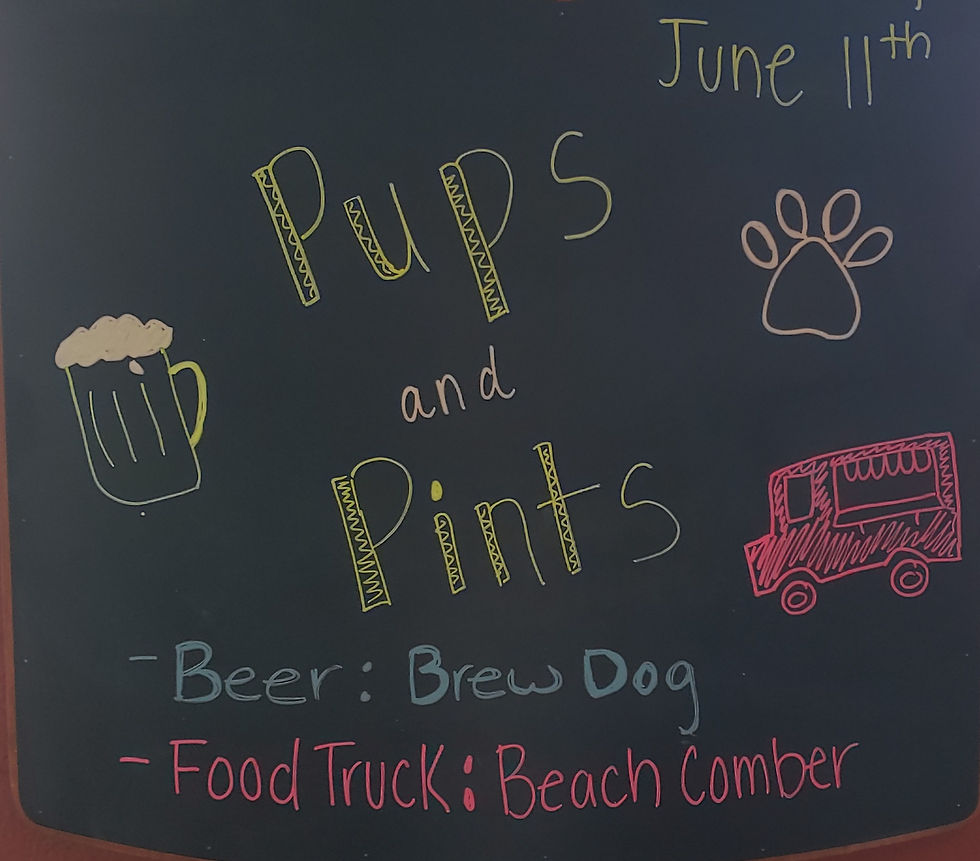 June 11th
Pups
and
Pints
- Beer: Brew Dog
- Food Truck: Beach Comber